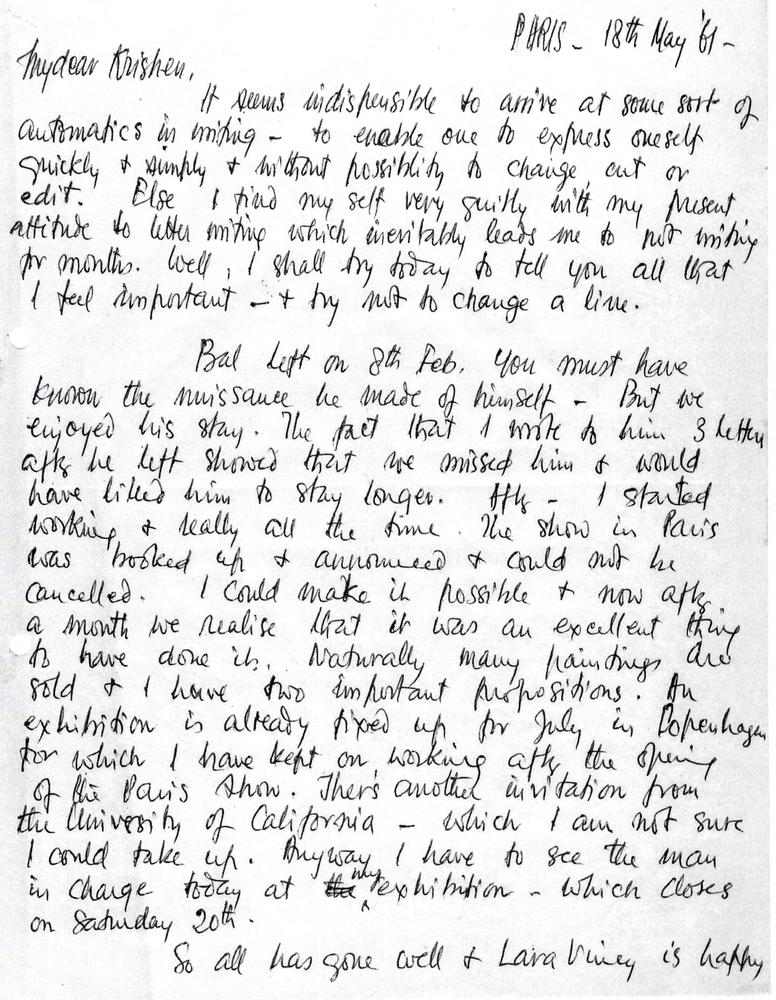 PARIS - 18th May '61 -
My dear Krishen,
It seems indispensible to arrive at some sort of
automatics in writing - to enable one to express oneself
quickly & simply & without possiblity to change, cut or
edit. Else I find my self very guilty with my present
attitude to letter writing which inevitably leads me to not writing
for months. Well, I shall try today to tell you all that
I feel important - & try not to change a line.
Bal left on 8th Feb. You must have
known the nuissance he made of himself - But we
enjoyed his stay. The fact that I wrote to him 3 letters
after he left showed that we missed him & would
have liked him to stay longer. After - I started
working & really all the time. The show in Paris
was booked up & announced & could not be
cancelled. I could make it possible & now after
a month we realise that it was an excellent thing
to have done it. Naturally many paintings are
sold & I have two important propositions. An
exhibition is already fixed up for July in Copenhagen
for which I have kept on working after the opening
of the Paris show. There's another invitation from
the University of California - which I am not sure
I could take up. Anyway I have to see the man
in charge today at the my exhibition - which closes
on Saturday 20th.
So all has gone well & Lara Vincy is happy